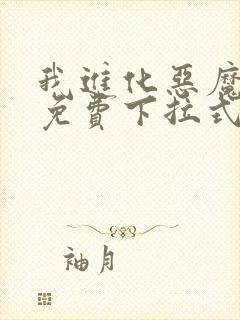 我进化恶魔
免费下拉式
袖月